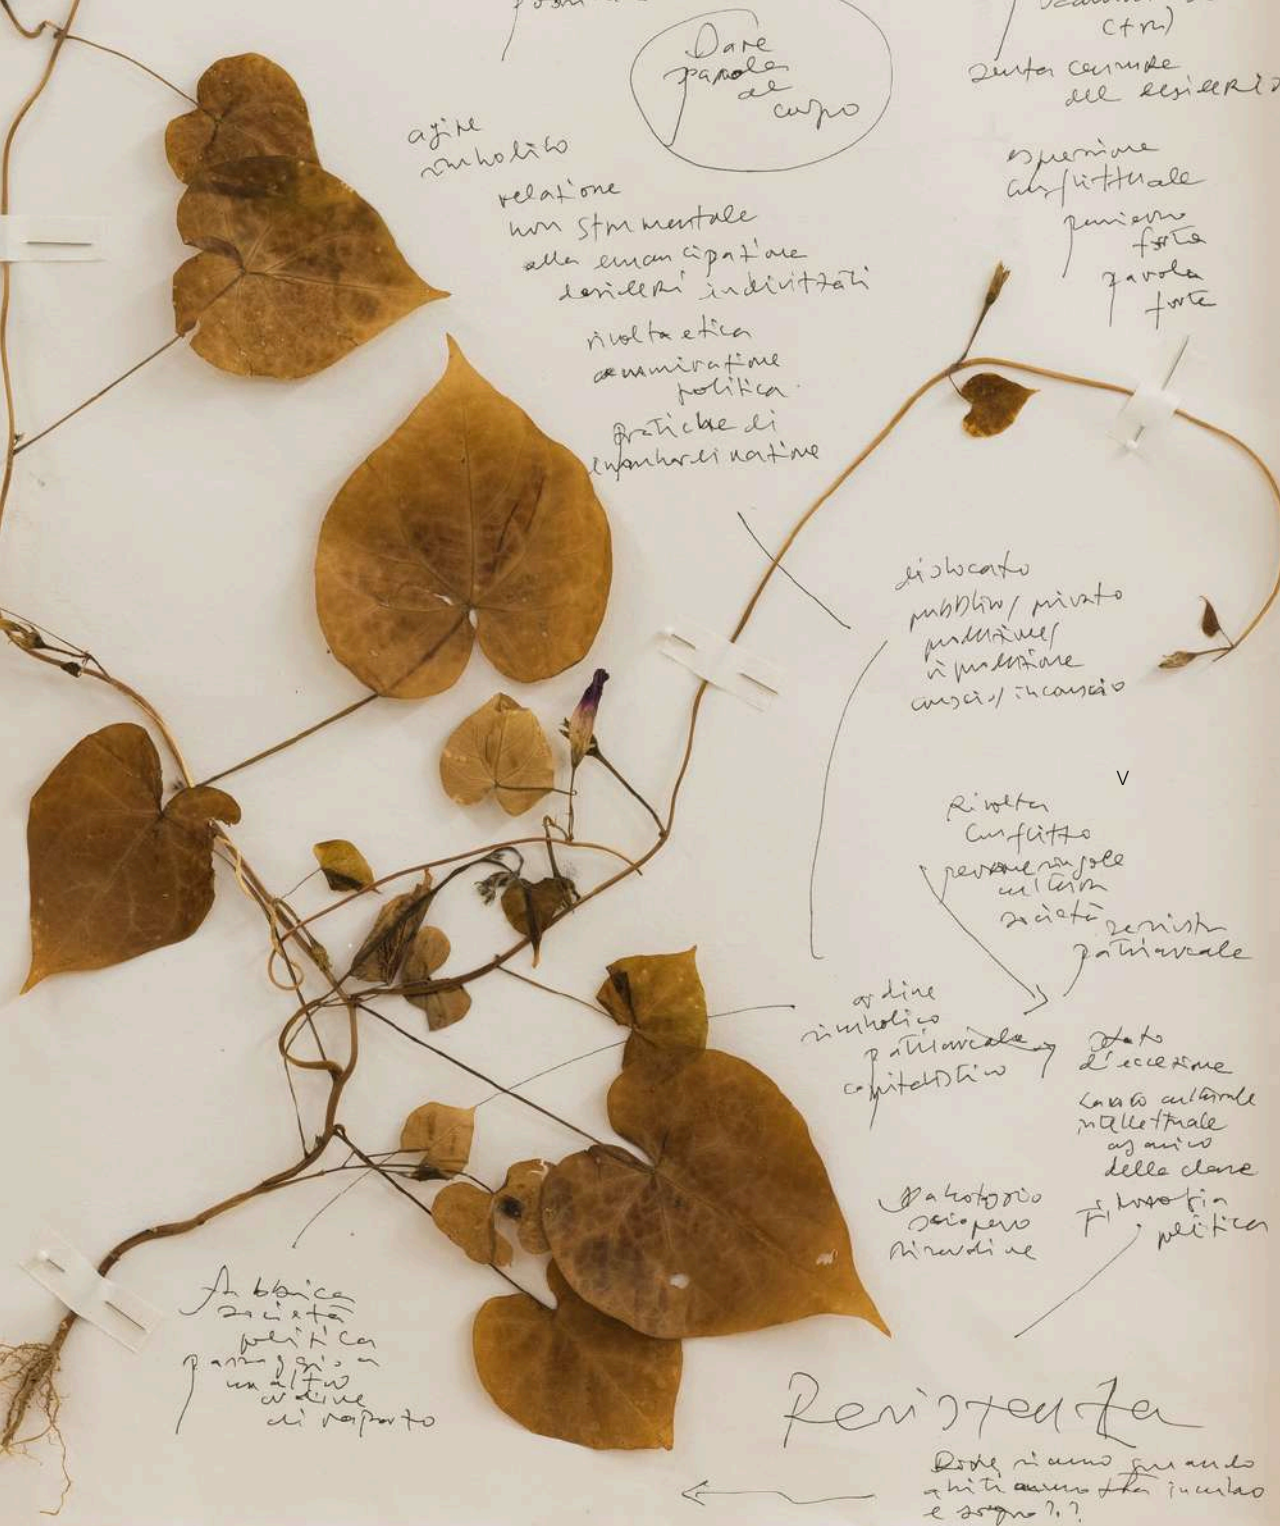 Dare
parola
al
corpo
(tra)
senza censure
del desiderio
agire
simbolico
relazione
non strumentale
alla emancipazione
desideri individuali
rivolta etica
politica
pratiche di
insubordinazione
espressione
conflittuale
pensiero
forte
parola
forte
dislocato
pubblico/privato
produzione/
riproduzione
conscio/inconscio
V
Rivolta
Conflitto
persone singole
società
sessista
patriarcale
ordine
simbolico
patriarcale
capitalistico
Stato
d'eccezione
lavoro culturale
intellettuale
organico
della classe
Filosofia
politica
Sabotaggio
sciopero
Fabbrica
società
politica
passaggio a
un altro
ordine
di rapporto
Resistenza
Dove siamo quando
abitiamo tra incubo
e sogno??